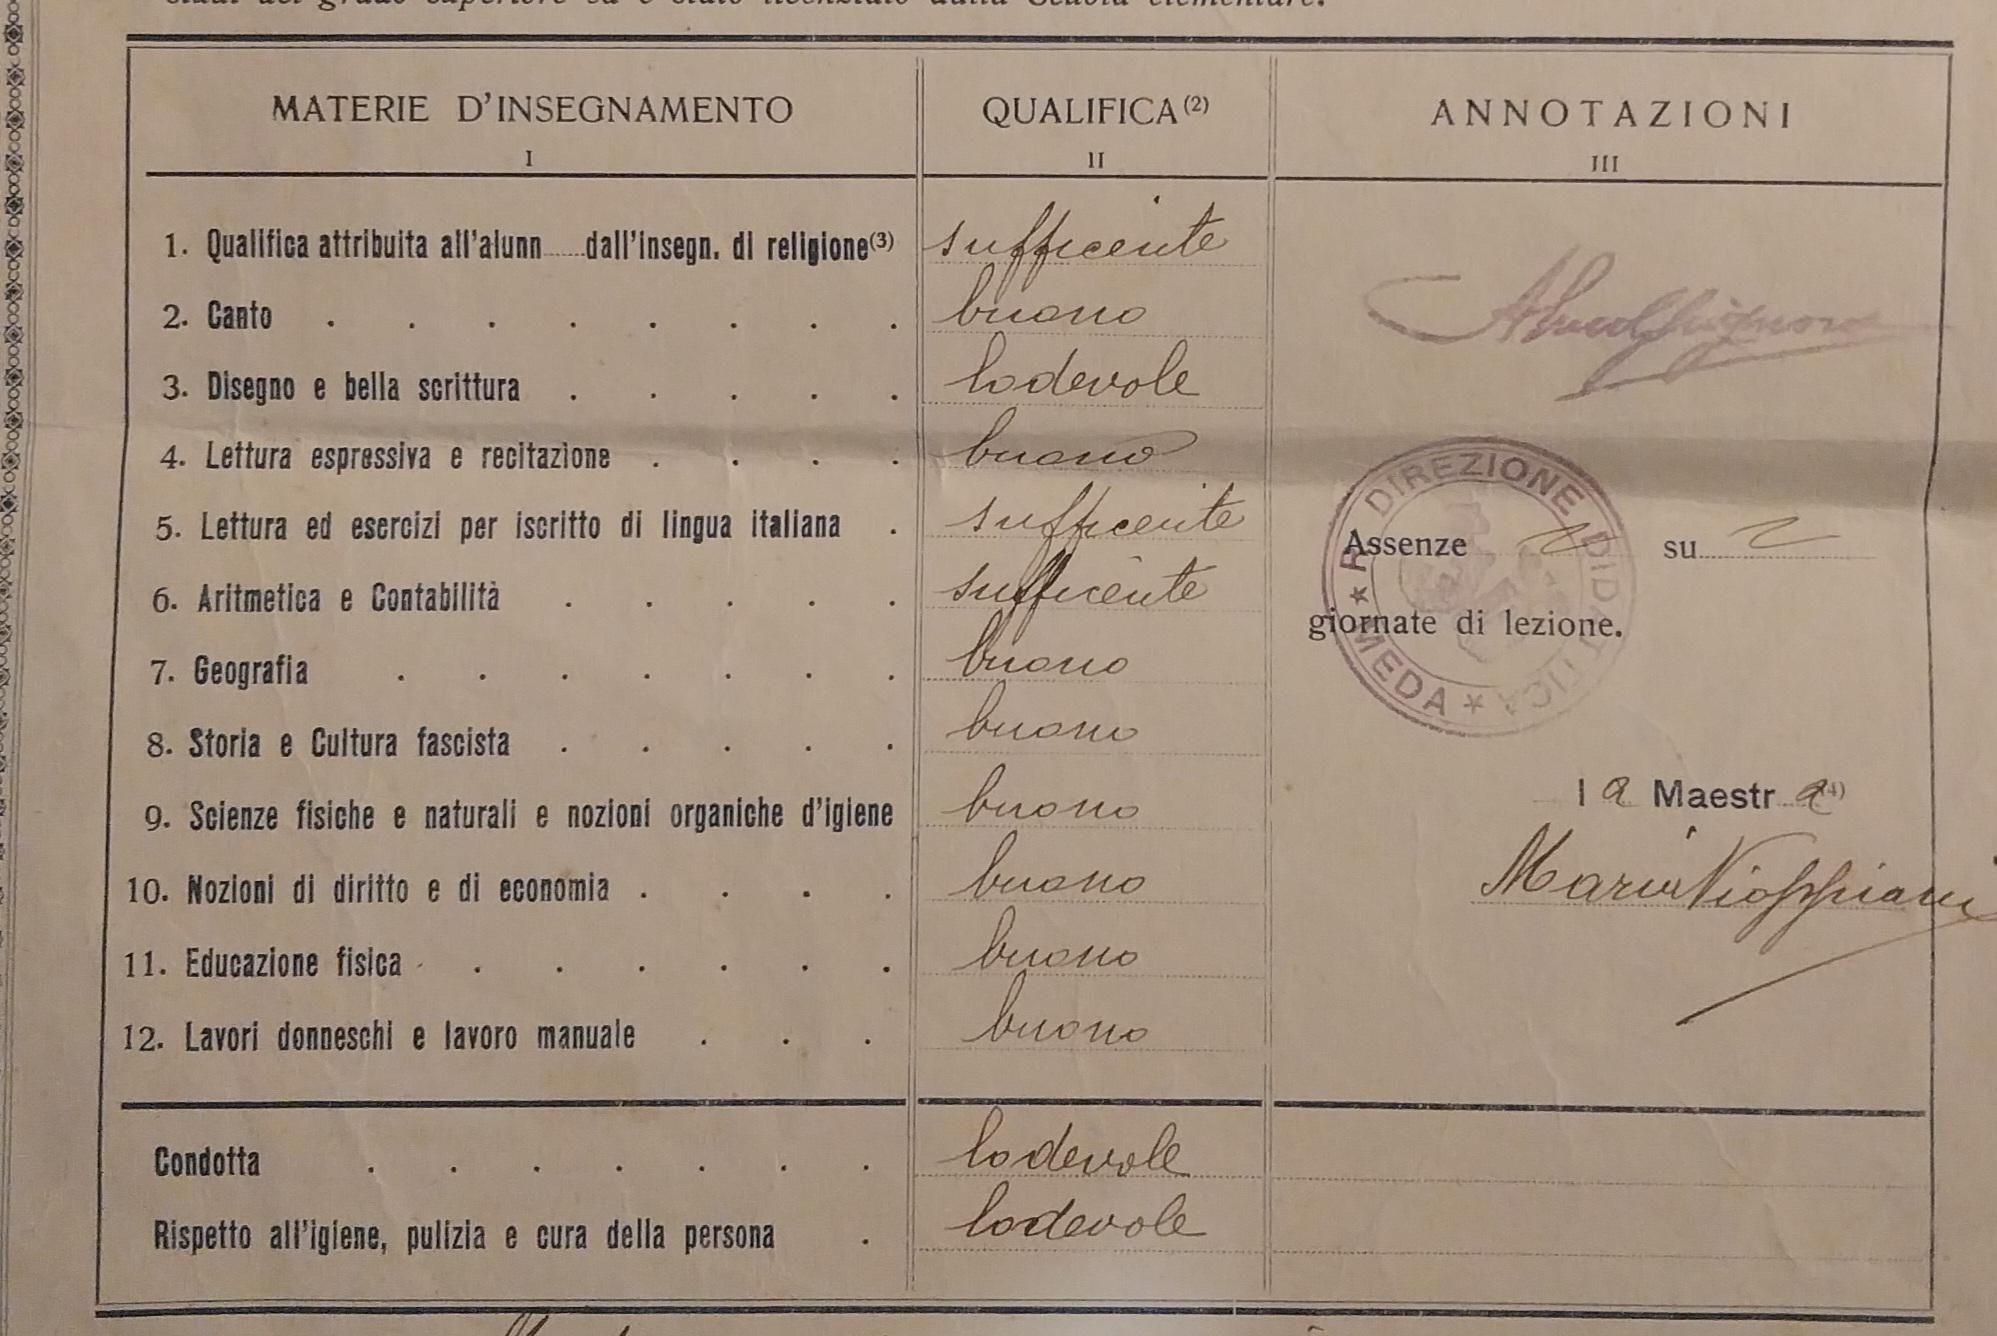 studi del grado superiore ed è stato licenziato dalla Scuola elementare.
MATERIE D'INSEGNAMENTO QUALIFICA(2) ANNOTAZIONI
I II III
1. Qualifica attribuita all'alunn......dall'insegn. di religione(3) sufficente
2. Canto . . . . . . . . buono
3. Disegno e bella scrittura . . . . . lodevole
4. Lettura espressiva e recitazione . . . . buono
5. Lettura ed esercizi per iscritto di lingua italiana . sufficente
Assenze su
6. Aritmetica e Contabilità . . . . . sufficente
giornate di lezione.
R. DIREZIONE DIDATTICA ★ MEDA ★
7. Geografia . . . . . . . buono
8. Storia e Cultura fascista . . . . . buono
9. Scienze fisiche e naturali e nozioni organiche d'igiene buono
la Maestra(4)
10. Nozioni di diritto e di economia . . . . buono
Maria
11. Educazione fisica . . . . . . buono
12. Lavori donneschi e lavoro manuale . . . buono
Condotta . . . . . . . lodevole
Rispetto all'igiene, pulizia e cura della persona . lodevole